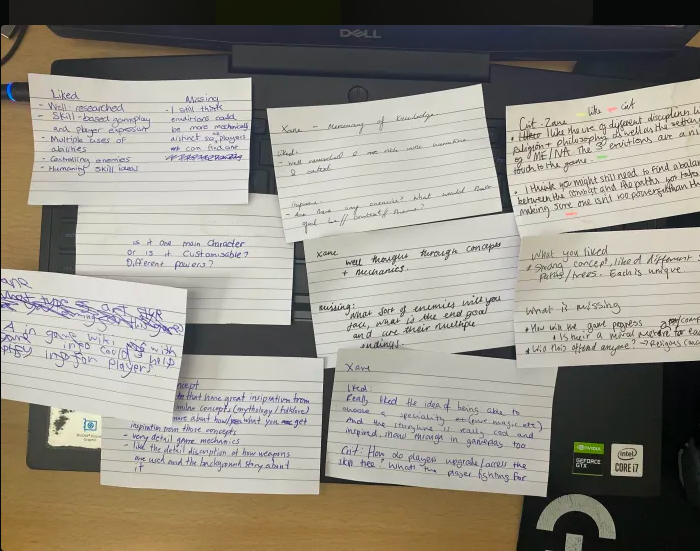 DELL
Liked
- Well researched
- Skill-based gameplay
and player expression
- Multiple uses of
abilities
- Controlling enemies
- Humanity skill ideas
Missing
- I still think
emitions could
be more mechanically
distinct so players
can find one
Xane - Mercenary of Knowledge
Liked:
- Well researched
& context
- Are there any enemies? What would their
goal be
Crit - Zane like crit
I like the use of different disciplines
religion + philosophy as well as the setting
of ME/NA. The 3 emitions are a
touch to the game.
I think you might still need to find a balance
between the combat and the paths
making sure one isn't too powerful than
is it one main character
Or is it customisable?
Different powers?
Xane
Well thought through concepts
+ mechanics.
Missing:
What sort of enemies will you
face, what is the end goal
and are their multiple
endings.
What you liked
Strong concept, liked different
Paths/trees. Each is unique.
What is missing
How will the game progress
Is their a moral
Will this offend anyone? → Religious
A in game wiki
info could help
for players
concept
that have great inspiration from
concepts (mythology/folklore)
more about how what you get
inspiration from those concepts
- very detail game mechanics
- like the detail discription of how weapons
are used and the background story about
it
Xane
Liked:
Really liked the idea of being able to
choose a speciality (pure magic etc)
And the storyline is really cool and
inspired, show through in gameplay too
Crit: How do players upgrade/access the
skill tree? What's the player fighting for
NVIDIA
GEFORCE
GTX
intel
CORE i7